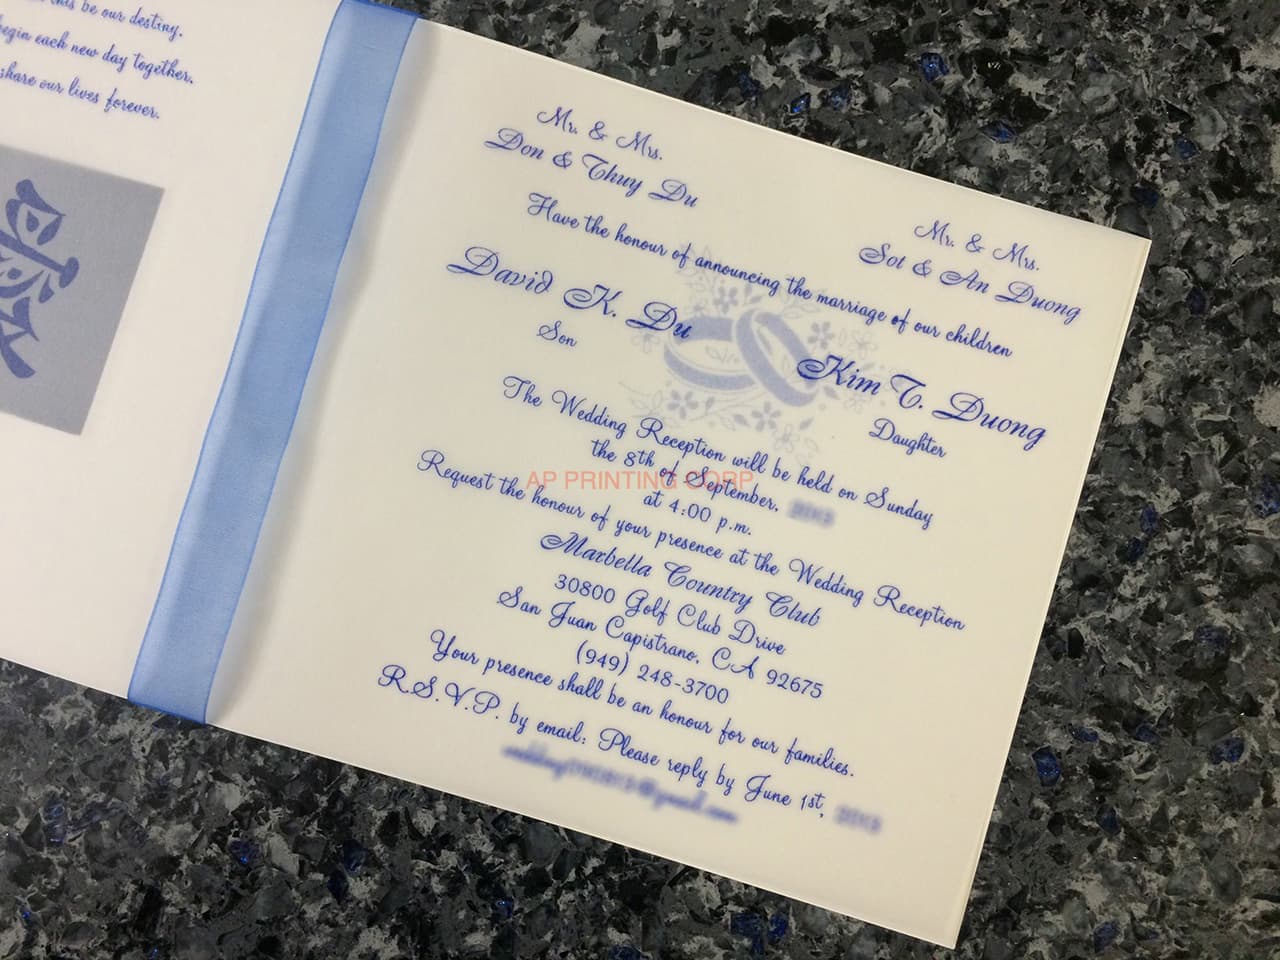 this be our destiny.
begin each new day together.
share our lives forever.
愛
Mr. & Mrs.
Don & Thuy Du
Mr. & Mrs.
Sot & An Duong
Have the honour of announcing the marriage of our children
David K. Du
Son
Kim T. Duong
Daughter
The Wedding Reception will be held on Sunday
the 8th of September,
at 4:00 p.m.
AP PRINTING CORP
Request the honour of your presence at the Wedding Reception
Marbella Country Club
30800 Golf Club Drive
San Juan Capistrano, CA 92675
(949) 248-3700
Your presence shall be an honour for our families.
R.S.V.P. by email: Please reply by June 1st,